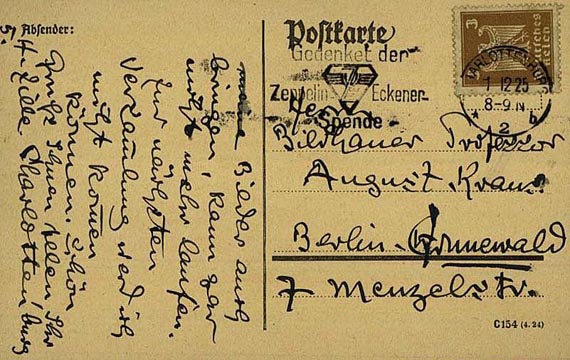 Absender:
Postkarte
Gedenket der
Zeppelin-Eckener-
Spende
3
Deutsches Reich
CHARLOTTENBURG
1 12 25
8-9 N
* 2 b
Herrn
Bildhauer Professor
August Kraus
Berlin-Grunewald
7 Menzelstr.
C154 (4. 24)
meine Bilder auch
bringen, kann gar
nicht mehr laufen.
Zur nächsten
Versamlung werd ich
nicht komen
können. Schön
Gruß Ihnen allen Ihr
H. Zille Charlottenburg
5.